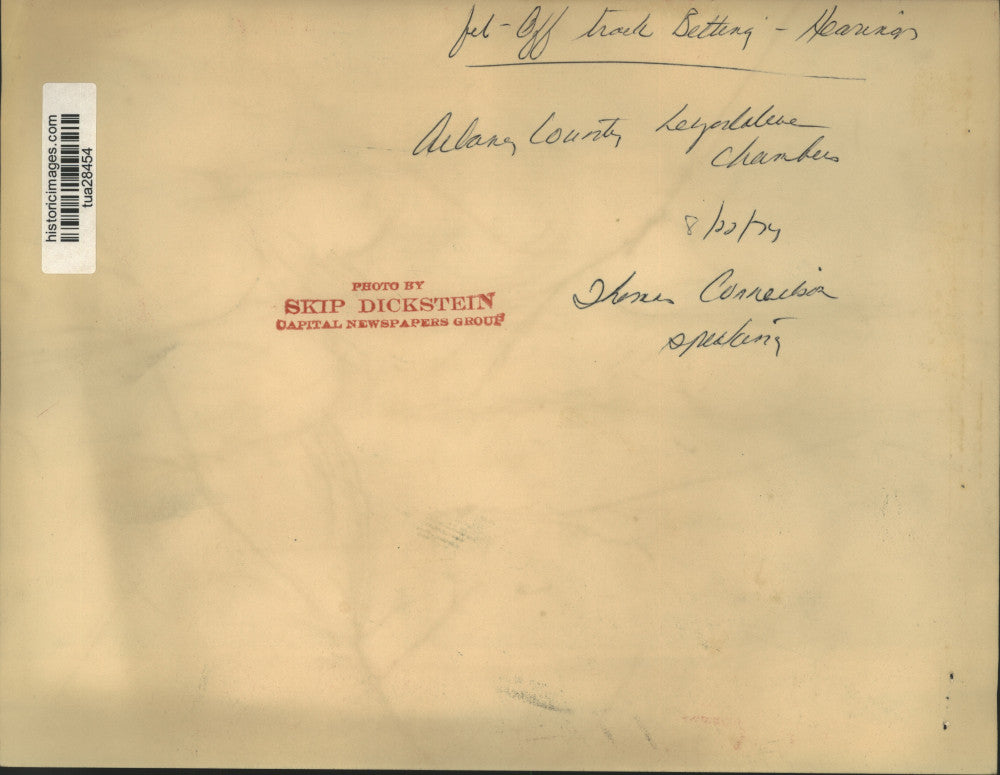 Off track Betting - Hearings
Albany County Legislative
Chambers
8/22/74
Thomas
speaking
PHOTO BY
SKIP DICKSTEIN
CAPITAL NEWSPAPERS GROUP
historicimages.com
tua28454